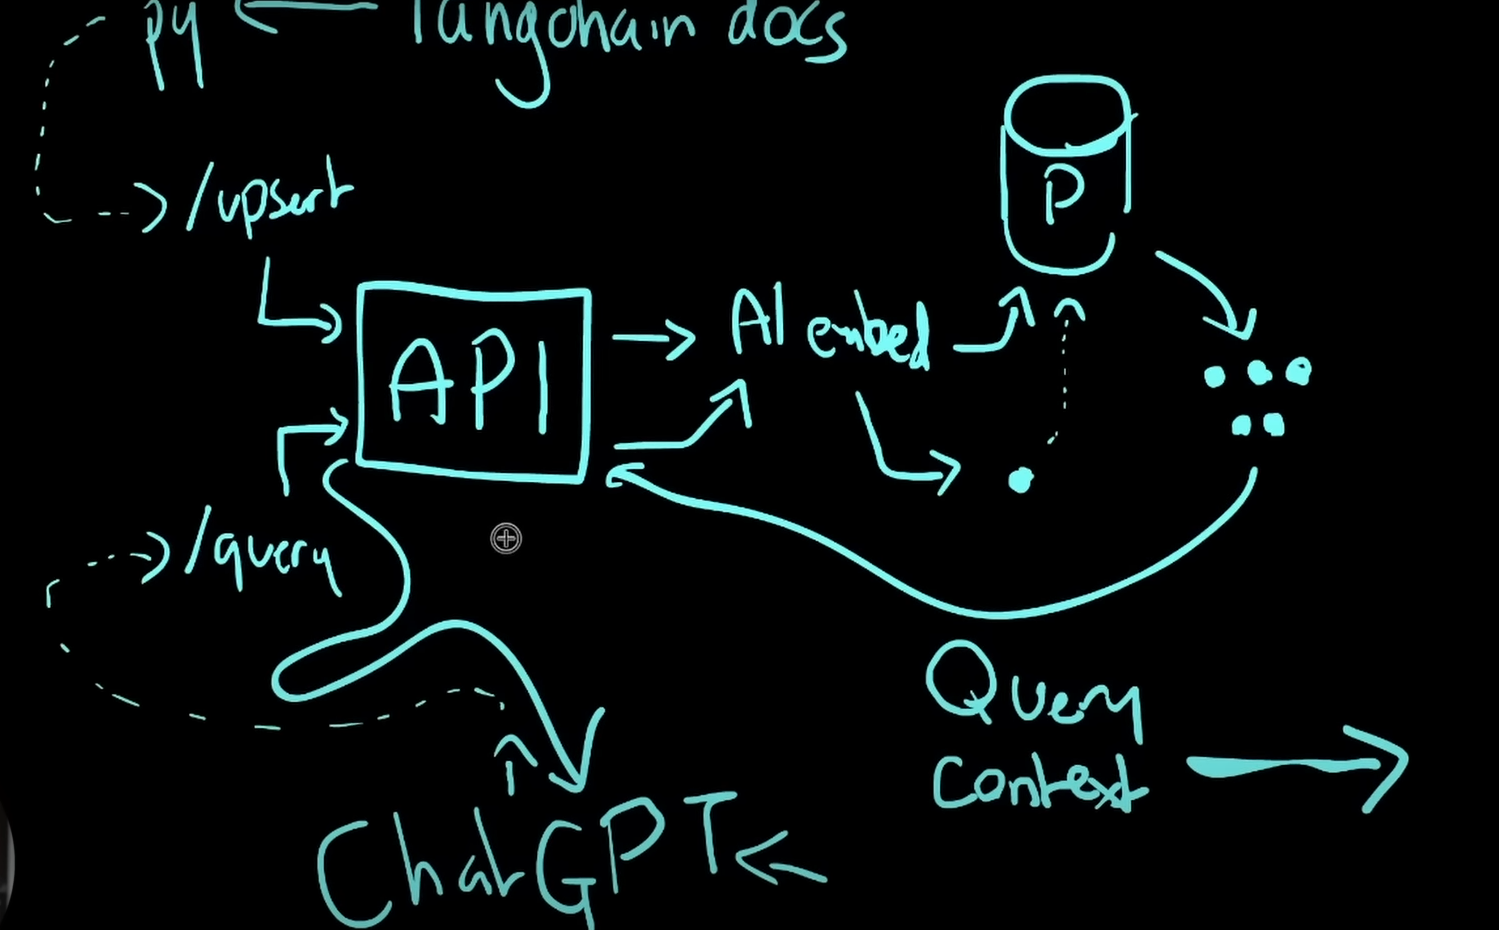 py langchain docs
/upsert
P
API
AI embed
/query
Query
Context
ChatGPT